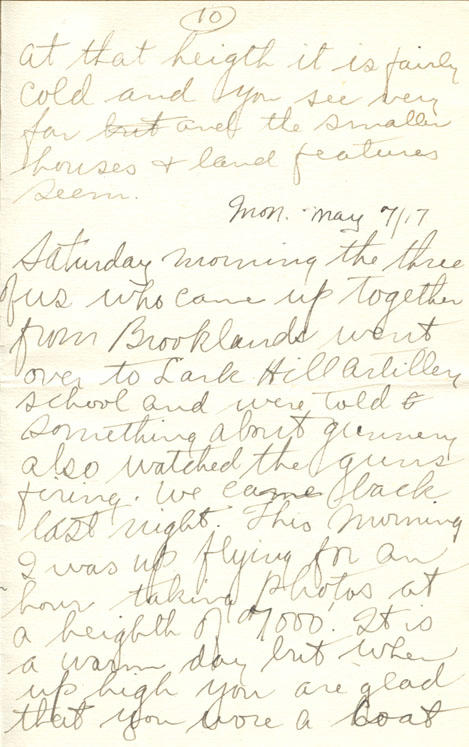 10
at that heigth it is fairly
cold and you see very
far but and the smaller
houses & land features
seem.
Mon. May 7/17
Saturday morning the three
of us who came up together
from Brooklands went
over to Lark Hill Artillery
school and were told
something about gunnery
also watched the guns
firing. We came back
last night. This morning
I was up flying for an
hour taking photos at
a heighth of 7000'. It is
a warm day but when
up high you are glad
that you wore a coat